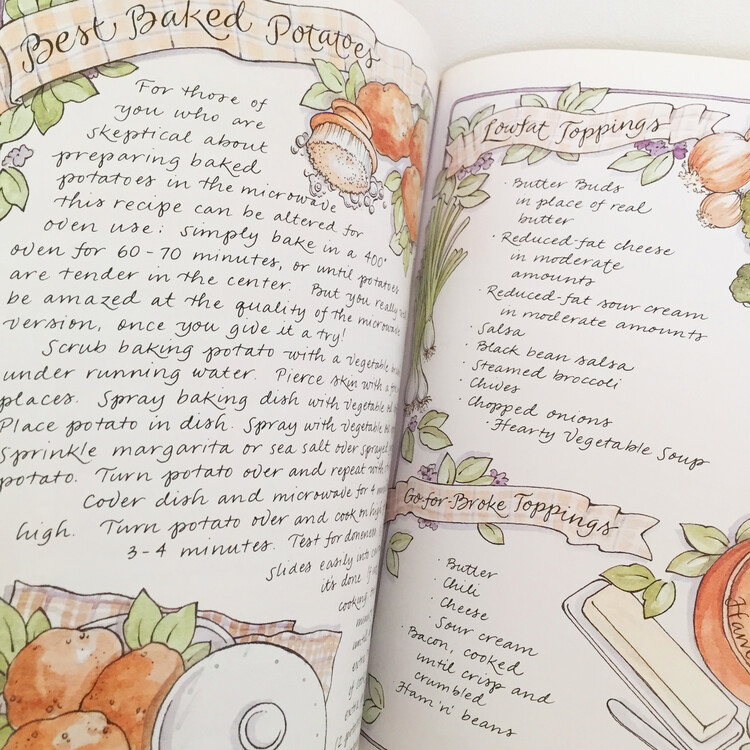 Best Baked Potatoes
For those of
you who are
skeptical about
preparing baked
potatoes in the microwave
this recipe can be altered for
oven use: Simply bake in a 400°
oven for 60-70 minutes, or until potatoes
are tender in the center. But you really
be amazed at the quality of the microwave
version, once you give it a try!
Scrub baking potato with a vegetable
under running water. Pierce skin with a
places. Spray baking dish with vegetable
Place potato in dish. Spray with vegetable
Sprinkle margarita or sea salt over sprayed
potato. Turn potato over and repeat with
Cover dish and microwave for 4
high. Turn potato over and cook on high
3-4 minutes. Test for doneness
slides easily into
it's done
cooking
Lowfat Toppings
· Butter Buds
in place of real
butter
· Reduced-fat cheese
in moderate
amounts
· Reduced-fat sour cream
in moderate amounts
· Salsa
· Black bean salsa
· Steamed broccoli
· Chives
· Chopped onions
· Hearty Vegetable Soup
Go-for-Broke Toppings
· Butter
· Chili
· Cheese
· Sour cream
· Bacon, cooked
until crisp and
crumbled
Ham 'n' beans
Ham